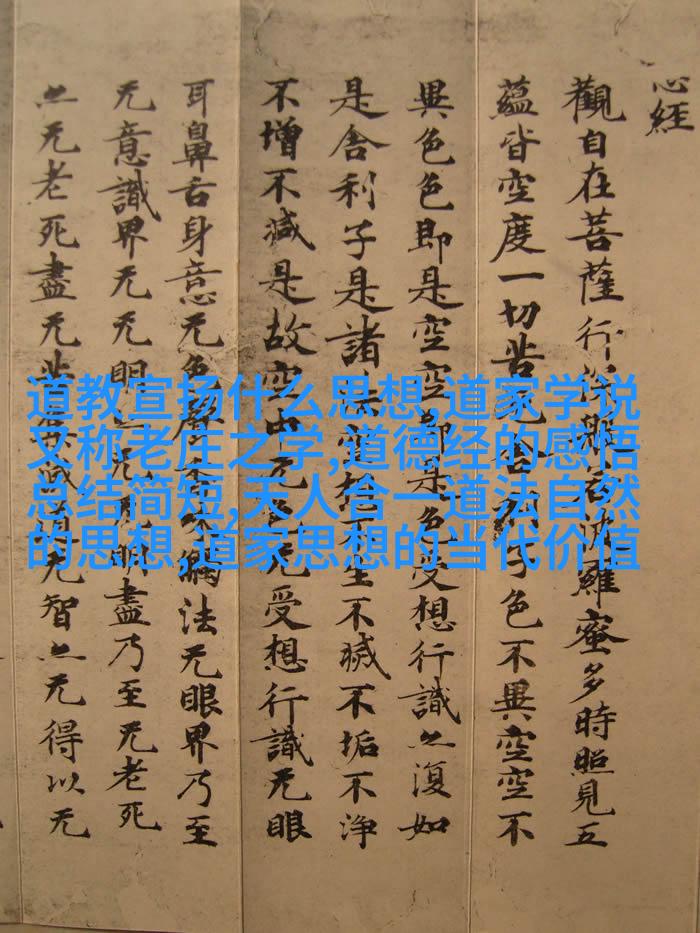 心經
觀自在菩薩行深般若波羅蜜多時照見五
蘊皆空度一切苦厄舍利子色不異空空不
異色色即是空空即是色受想行識亦復如
是舍利子是諸法空相不生不滅不垢不淨
不增不減是故空中无色无受想行識无眼
耳鼻舌身意无色聲香味觸法无眼界乃至
无意識界无无明亦无无明盡乃至无老死
亦无老死盡无苦集滅道无智亦无得以无
道教宣扬什么思想,道家学说
又称老庄之学,道德经的感悟
总结简短,天人合一道法自然
的思想,道家思想的当代价值